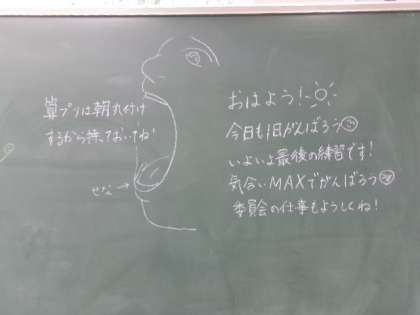 算プリは朝丸付け
するから持っておいてね!
せな→
おはよう!
今日も1日がんばろう
いよいよ最後の練習です!
気合いMAXでがんばろう
委員会の仕事もよろしくね!